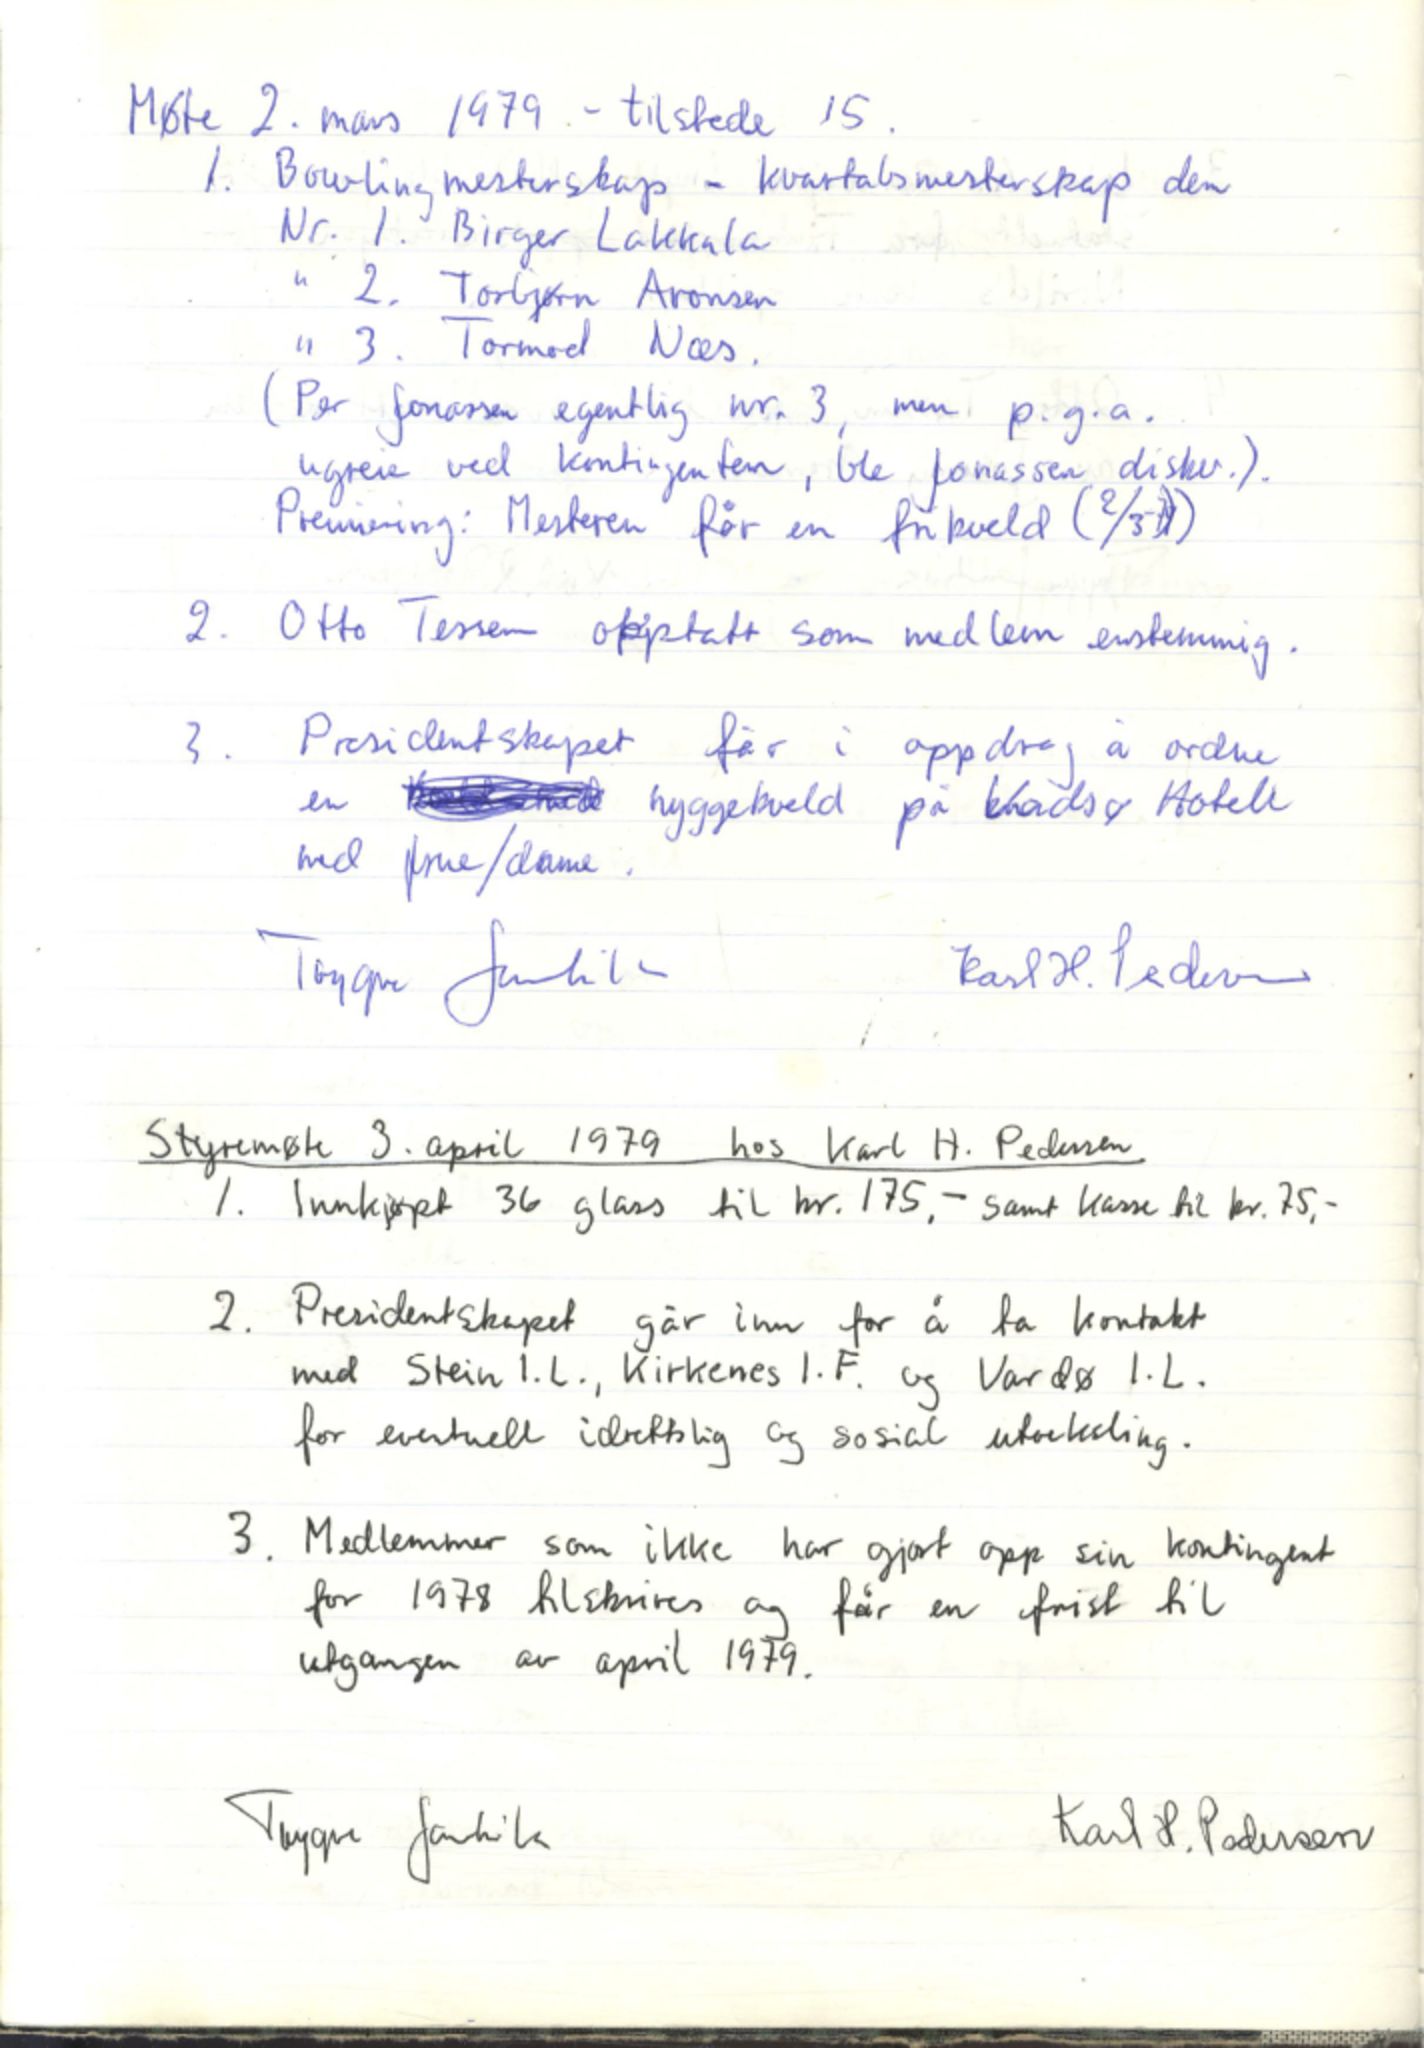 Møte 2. mars 1979 - tilstede 15.
1. Bowlingmesterskap - kvartalsmesterskap den
Nr. 1. Birger Lakkala
" 2. Torbjørn Aronsen
" 3. Tormod Næs.
(Per Jonassen egentlig nr. 3, men p.g.a.
ugreie ved kontingenten, ble Jonassen diskv.).
Premiering: Mesteren får en frikveld (2/3-)
2. Otto Tessem opptatt som medlem enstemmig.
3. Presidentskapet får i oppdrag å ordne
en hyggekveld på Vadsø Hotell
med frue/dame.
Trygve Karl H. Pedersen
Styremøte 3. april 1979 hos Karl H. Pedersen
1. Innkjøpt 36 glass til kr. 175,- samt kasse til kr. 75,-
2. Presidentskapet går inn for å ta kontakt
med Stein I.L., Kirkenes I.F. og Vardø I.L.
for eventuell idrettslig og sosial utveksling.
3. Medlemmer som ikke har gjort opp sin kontingent
for 1978 tilskrives og får en frist til
utgangen av april 1979.
Trygve Karl H. Pedersen